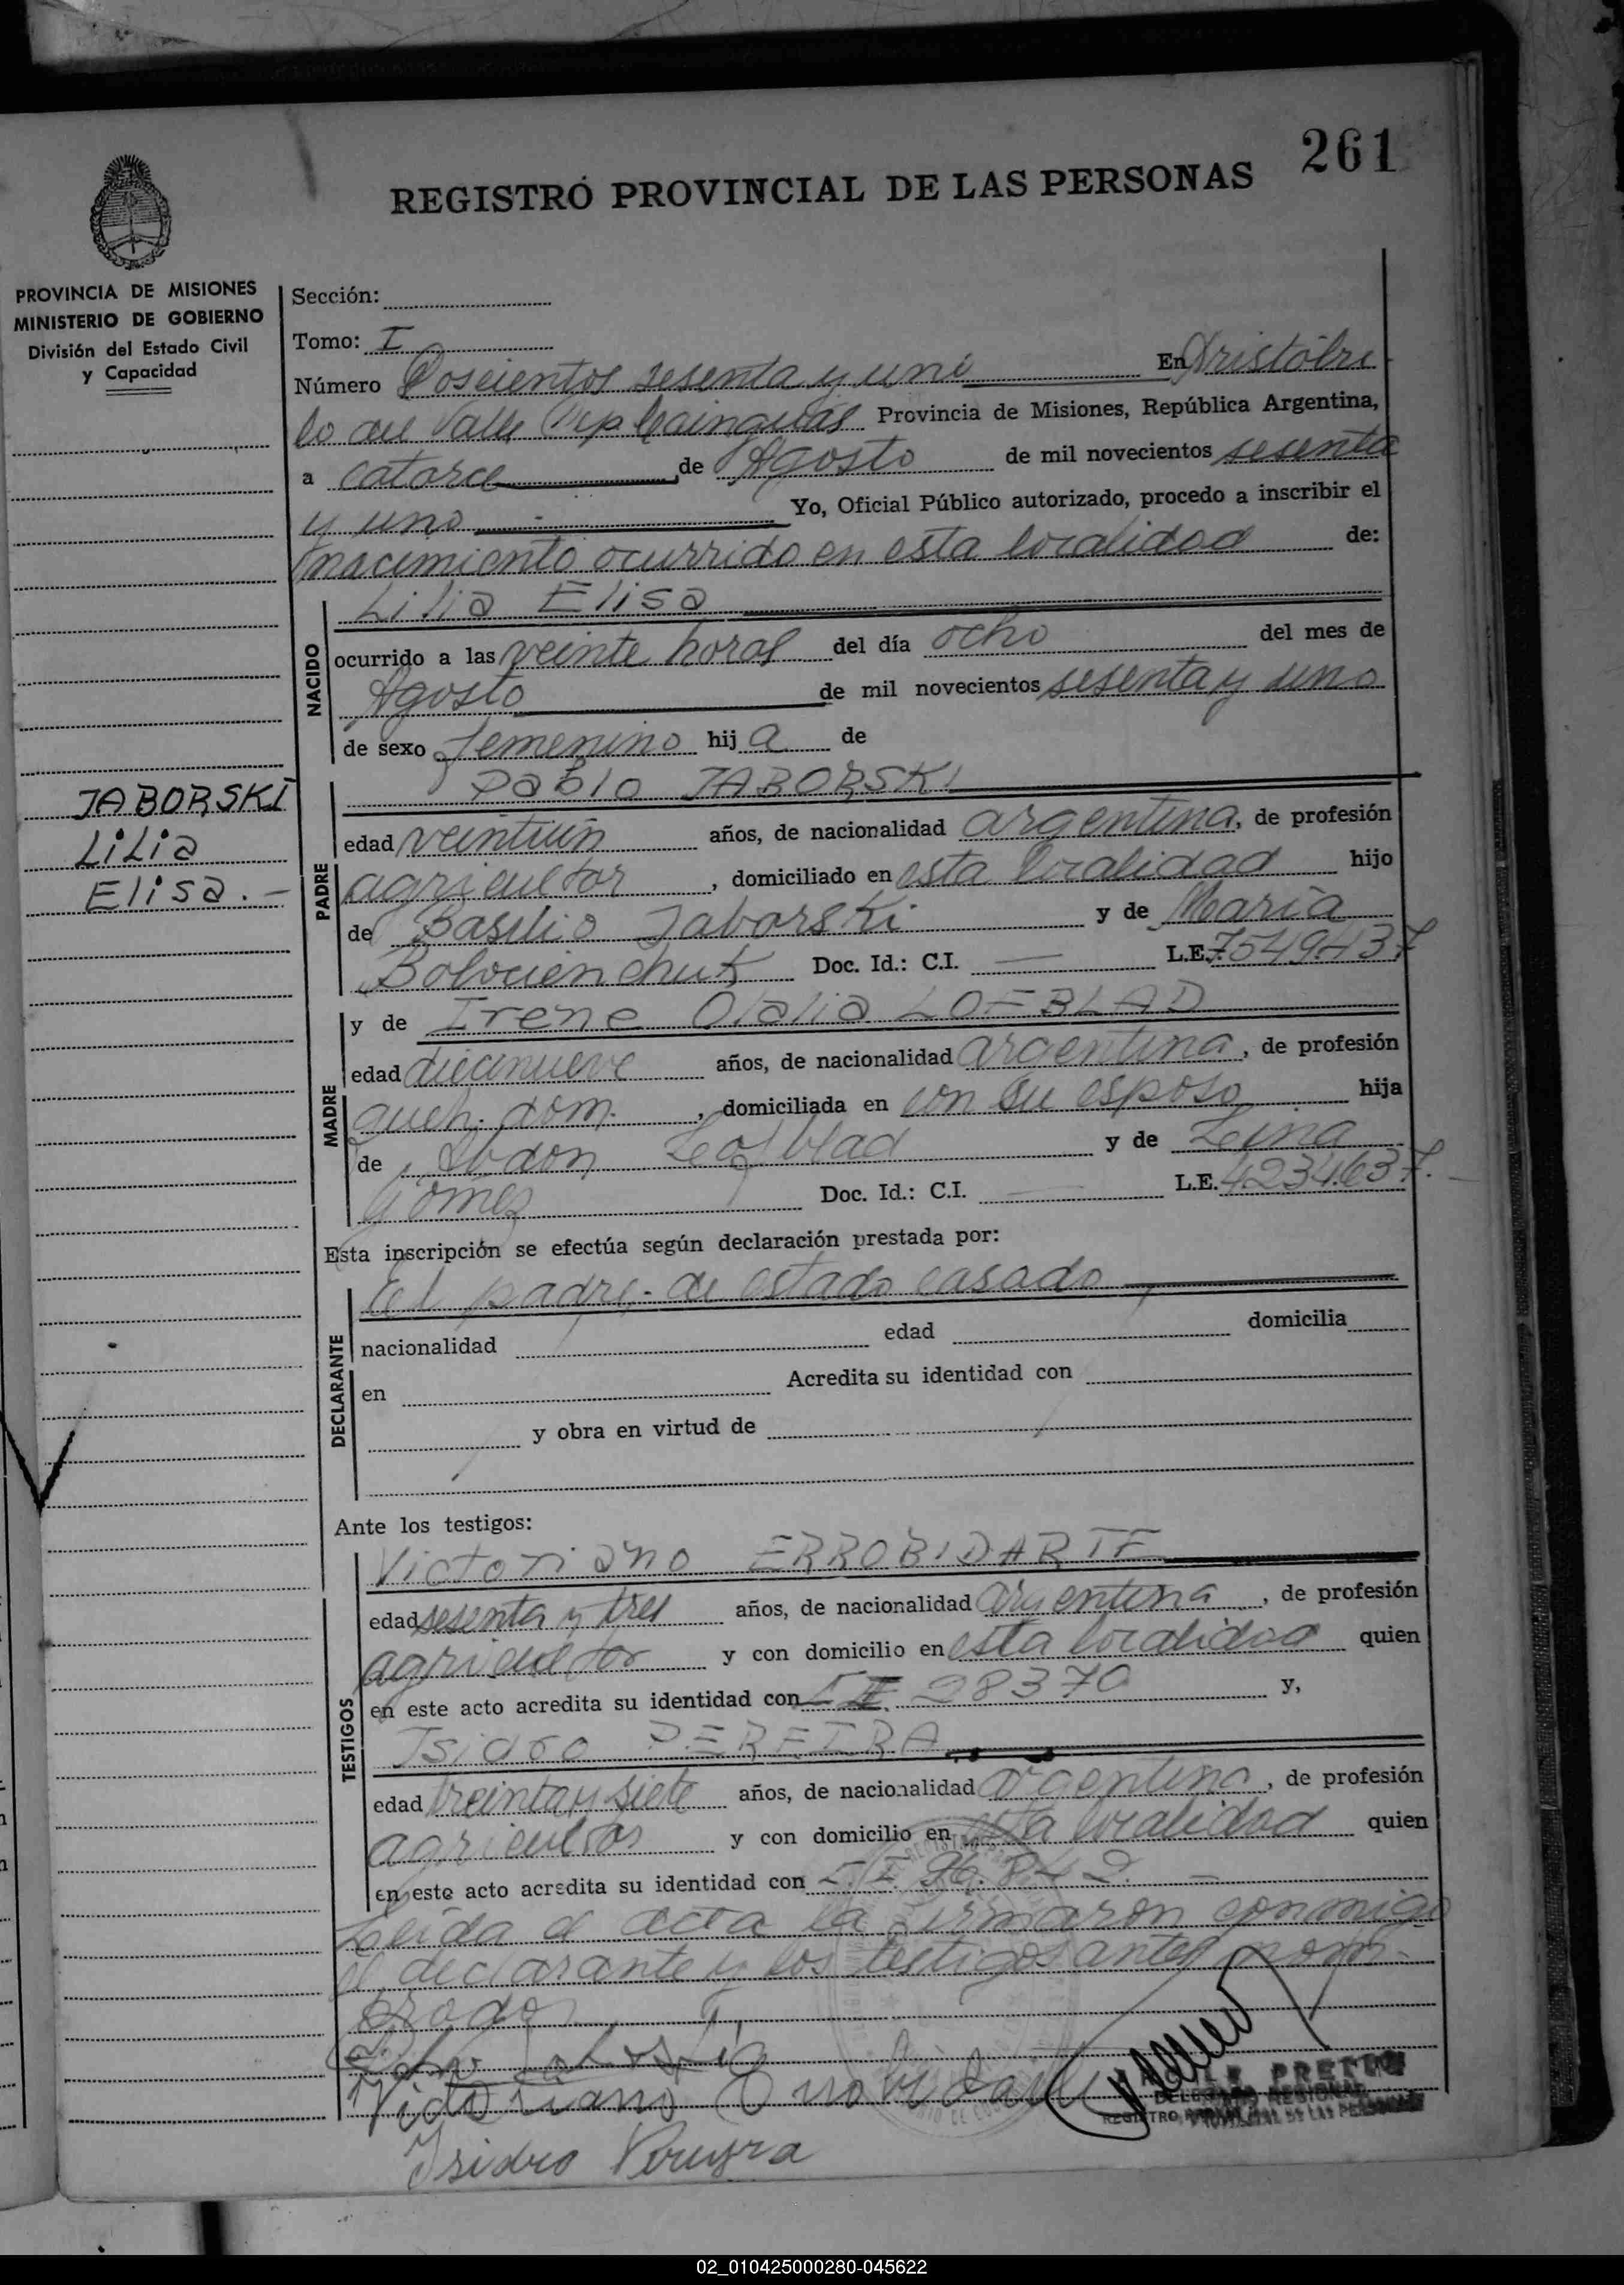 261
REGISTRO PROVINCIAL DE LAS PERSONAS
PROVINCIA DE MISIONES
MINISTERIO DE GOBIERNO
División del Estado Civil
y Capacidad
Sección:
Tomo: I
Número Doscientos sesenta y uno En Aristóbu
lo del Valle Dep Cainguás Provincia de Misiones, República Argentina,
a catorce de Agosto de mil novecientos sesenta
y uno Yo, Oficial Público autorizado, procedo a inscribir el
nacimiento ocurrido en esta localidad de:
NACIDO
Lilia Elisa
ocurrido a las veinte horas del día ocho del mes de
Agosto de mil novecientos sesenta y uno
de sexo femenino hij a de
JABORSKI
Lilia
Elisa.-
PADRE
Pablo JABORSKI
edad veintiún años, de nacionalidad argentina, de profesión
agricultor, domiciliado en esta localidad hijo
de Basilio Jaborski y de María
Doc. Id.: C.I. — L.E. 7549437
MADRE
y de Irene Olalia LOFBLAD
edad diecinueve años, de nacionalidad argentina, de profesión
queh. dom., domiciliada en con su esposo hija
de Abdon y de
Gómez Doc. Id.: C.I. — L.E. 4.234.637.-
Esta inscripción se efectúa según declaración prestada por:
DECLARANTE
el padre.- de estado casado
nacionalidad edad domicilia
en Acredita su identidad con
y obra en virtud de
Ante los testigos:
TESTIGOS
Victoriano ERROBIDARTE
edad sesenta y tres años, de nacionalidad argentina, de profesión
agricultor y con domicilio en esta localidad quien
en este acto acredita su identidad con 28370 y,
Isidro PEREIRA
edad treinta y siete años, de nacionalidad argentina, de profesión
agricultor y con domicilio en esta localidad quien
en este acto acredita su identidad con 96.842.-
Leida el acta la firmaron conmigo
el declarante y los testigos antes nom-
brados
Victoriano Errobidarte
PRETTO
DELEGADO REGIONAL
REGISTRO PROVINCIAL DE LAS PERSONAS
Isidro Pereyra
02_010425000280-045622